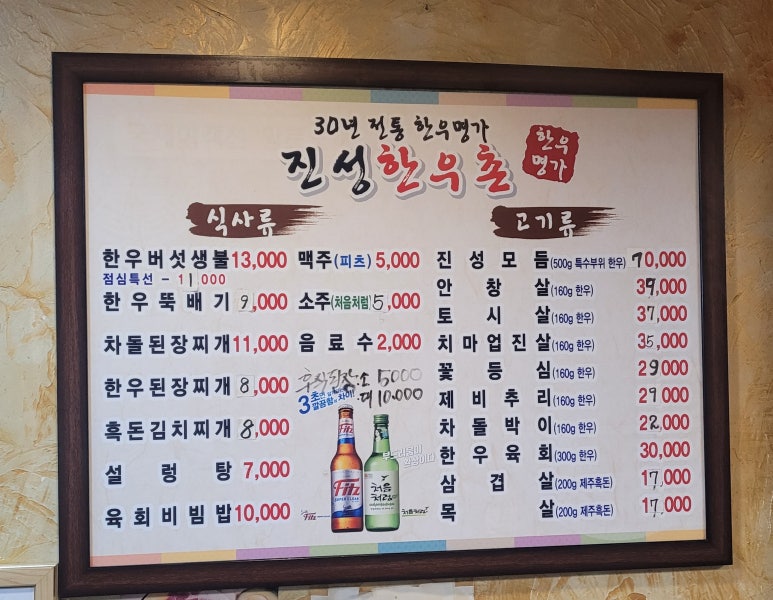 30년 전통 한우명가
진성한우촌
한우
명가
식사류
한우버섯생불 13,000
점심특선 - 11,000
한우뚝배기 9,000
차돌된장찌개 11,000
한우된장찌개 8,000
흑돈김치찌개 8,000
설렁탕 7,000
육회비빔밥 10,000
맥주(피츠) 5,000
소주(처음처럼) 5,000
음료수 2,000
후식된장: 소 5000
대 10.000
3초면
깔끔함의 차이!
Fitz
SUPER CLEAR
부드러움이
처음처럼
Fitz
처음처럼
고기류
진성모듬(500g 특수부위 한우) 70,000
안창살(160g 한우) 39,000
토시살(160g 한우) 37,000
치마업진살(160g 한우) 35,000
꽃등심(160g 한우) 29000
제비추리(160g 한우) 29000
차돌박이(160g 한우) 22,000
한우육회(300g 한우) 30,000
삼겹살(200g 제주흑돈) 17,000
목살(200g 제주흑돈) 17,000